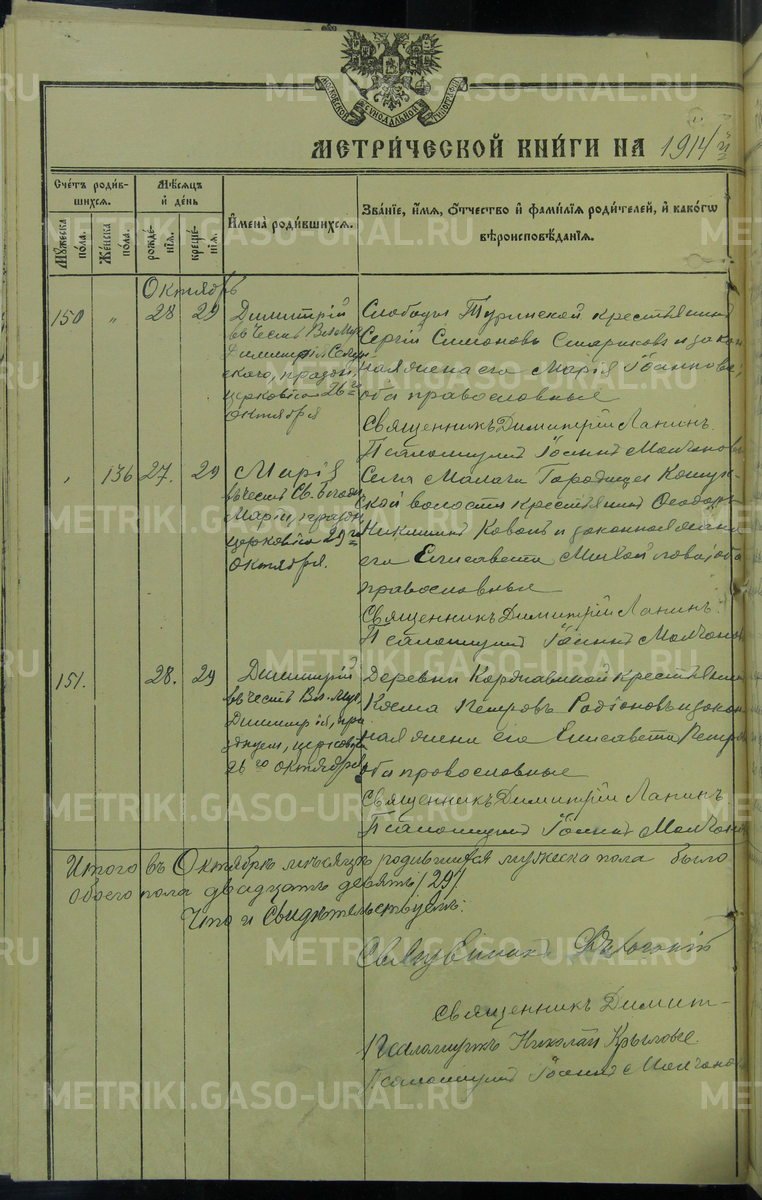 МОСКОВСКОЙ СУНОДАЛЬНОЙ ТИПОГРАФІИ
МЕТРИ́ЧЕСКОЙ КНИ́ГИ НА 1914 й
Сче́тъ роди́в-
шихся.
Мѣ́сяцъ
и҆ де́нь
И҆мена̀ роди́вшихся.
Зва́нїе, и҆́мя, ѻ҆́тчество и҆ фами́лїя роди́телей, и҆ како́гѡ
вѣроисповѣ́данїя.
Мꙋ́жеска по́ла.
Же́нска по́ла.
рожде́-нїя.
креще́-нїя.
Октябрь
150 „ 28 29
Димитрій
въ честь Вл. Муч.
Димитрія Солун-
скаго, праздн.
церковію 26 го
октября
Слободы Туринской крестьянинъ
Сергій Симоновъ Стариковъ и закон
ная жена его Марія Іоаннова,
оба православные
Священникъ Димитрій Лапинъ.
Псаломщикъ Іоаннъ Молчановъ
„ 136 27. 29
Марія
въ честь Св.
Маріи, праздн.
церковію 29 го
октября.
Села Малаго Городища Кошук-
ской волости крестьянинъ Ѳеодоръ
Никитинъ и законная жена
его Елисавета оба
православные
Священникъ Димитрій Лапинъ.
Псаломщикъ Іоаннъ Молчанов
151. 28. 29
Димитрій
въ честь Вл. Муч.
Димитрія, пра
зднуем. церковію
26 го октября
Деревни крестьянин
Козма Петровъ Родіоновъ и закон
ная жена его Елисавета Петро
оба православные
Священникъ Димитрій Лапинъ
Псаломщикъ Іоаннъ Молчано
Итого въ Октябрѣ мѣсяцѣ родившихся мужеска пола было
обоего пола двадцать девять /29/
Что и свидѣтельствуемъ:
Священникъ
Священникъ Димит-
Псаломщикъ Николай Крыловъ.
Псаломщикъ Іоаннъ Молчанов
METRIKI.GASO-URAL.RU